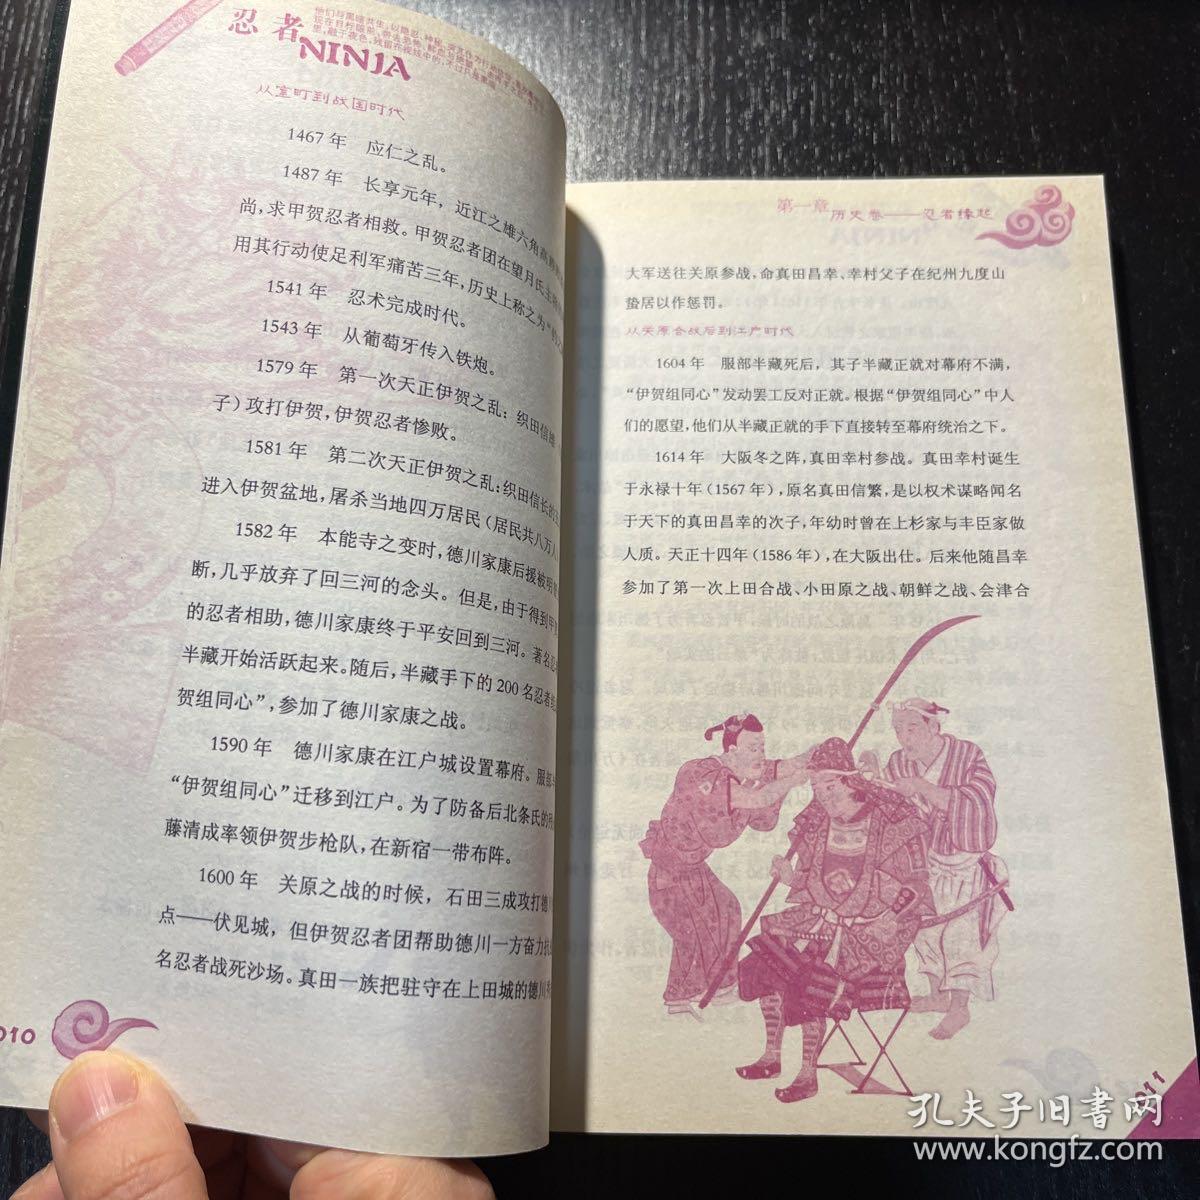 忍者
NINJA
从室町到战国时代
1467年 应仁之乱。
1487年 长享元年，近江之雄六角高
尚，求甲贺忍者相救。甲贺忍者团在望月氏
用其行动使足利军痛苦三年，历史上称之为“
1541年 忍术完成时代。
1543年 从葡萄牙传入铁炮。
1579年 第一次天正伊贺之乱：织田信雄
子）攻打伊贺，伊贺忍者惨败。
1581年 第二次天正伊贺之乱：织田信长的
进入伊贺盆地，屠杀当地四万居民（居民共八万人
1582年 本能寺之变时，德川家康后援被明
断，几乎放弃了回三河的念头。但是，由于得到甲
的忍者相助，德川家康终于平安回到三河。著名忍
半藏开始活跃起来。随后，半藏手下的200名忍者
贺组同心”，参加了德川家康之战。
1590年 德川家康在江户城设置幕府。服部
“伊贺组同心”迁移到江户。为了防备后北条氏的
藤清成率领伊贺步枪队，在新宿一带布阵。
1600年 关原之战的时候，石田三成攻打德
点——伏见城，但伊贺忍者团帮助德川一方奋力
名忍者战死沙场。真田一族把驻守在上田城的德川
010
第一章 历史卷——忍者缘起
大军送往关原参战，命真田昌幸、幸村父子在纪州九度山
蛰居以作惩罚。
从关原合战后到江户时代
1604年 服部半藏死后，其子半藏正就对幕府不满，
“伊贺组同心”发动罢工反对正就。根据“伊贺组同心”中人
们的愿望，他们从半藏正就的手下直接转至幕府统治之下。
1614年 大阪冬之阵，真田幸村参战。真田幸村诞生
于永禄十年（1567年），原名真田信繁，是以权术谋略闻名
于天下的真田昌幸的次子，年幼时曾在上杉家与丰臣家做
人质。天正十四年（1586年），在大阪出仕。后来他随昌幸
参加了第一次上田合战、小田原之战、朝鲜之战、会津合
011
孔夫子旧书网
www.kongfz.com